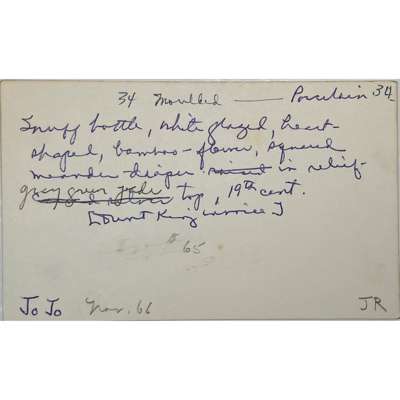 34 Moulded — Porcelain 34
Snuff bottle, white glazed, heart-
shaped, bamboo-flower, squared
meander diaper raised in relief-
gray green jade top, 19th cent.
[Burt King invoice]
$65
JoJo Nov. 66 JR